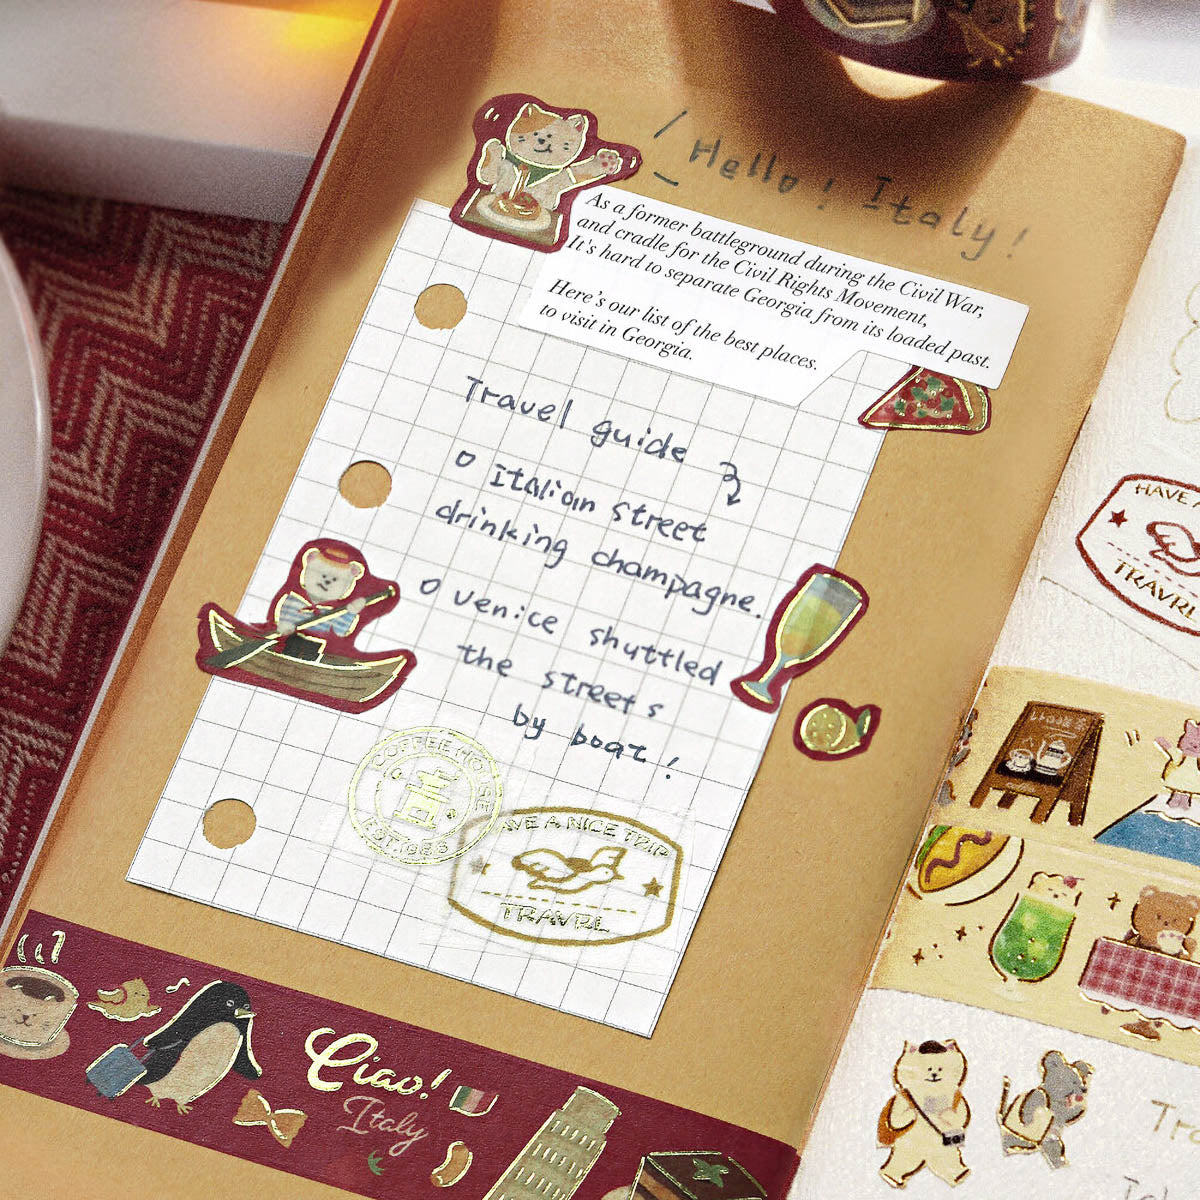 Hello! Italy!
As a former battleground during the Civil War,
and cradle for the Civil Rights Movement,
It's hard to separate Georgia from its loaded past.
Here's our list of the best places.
to visit in Georgia.
Travel guide
o Italian street
drinking champagne.
o venice shuttled
the streets
by boat!
COFFEE HOUSE
EST.1986
HAVE A NICE TRIP
TRAVEL
Ciao!
Italy
HAVE
TRAVEL